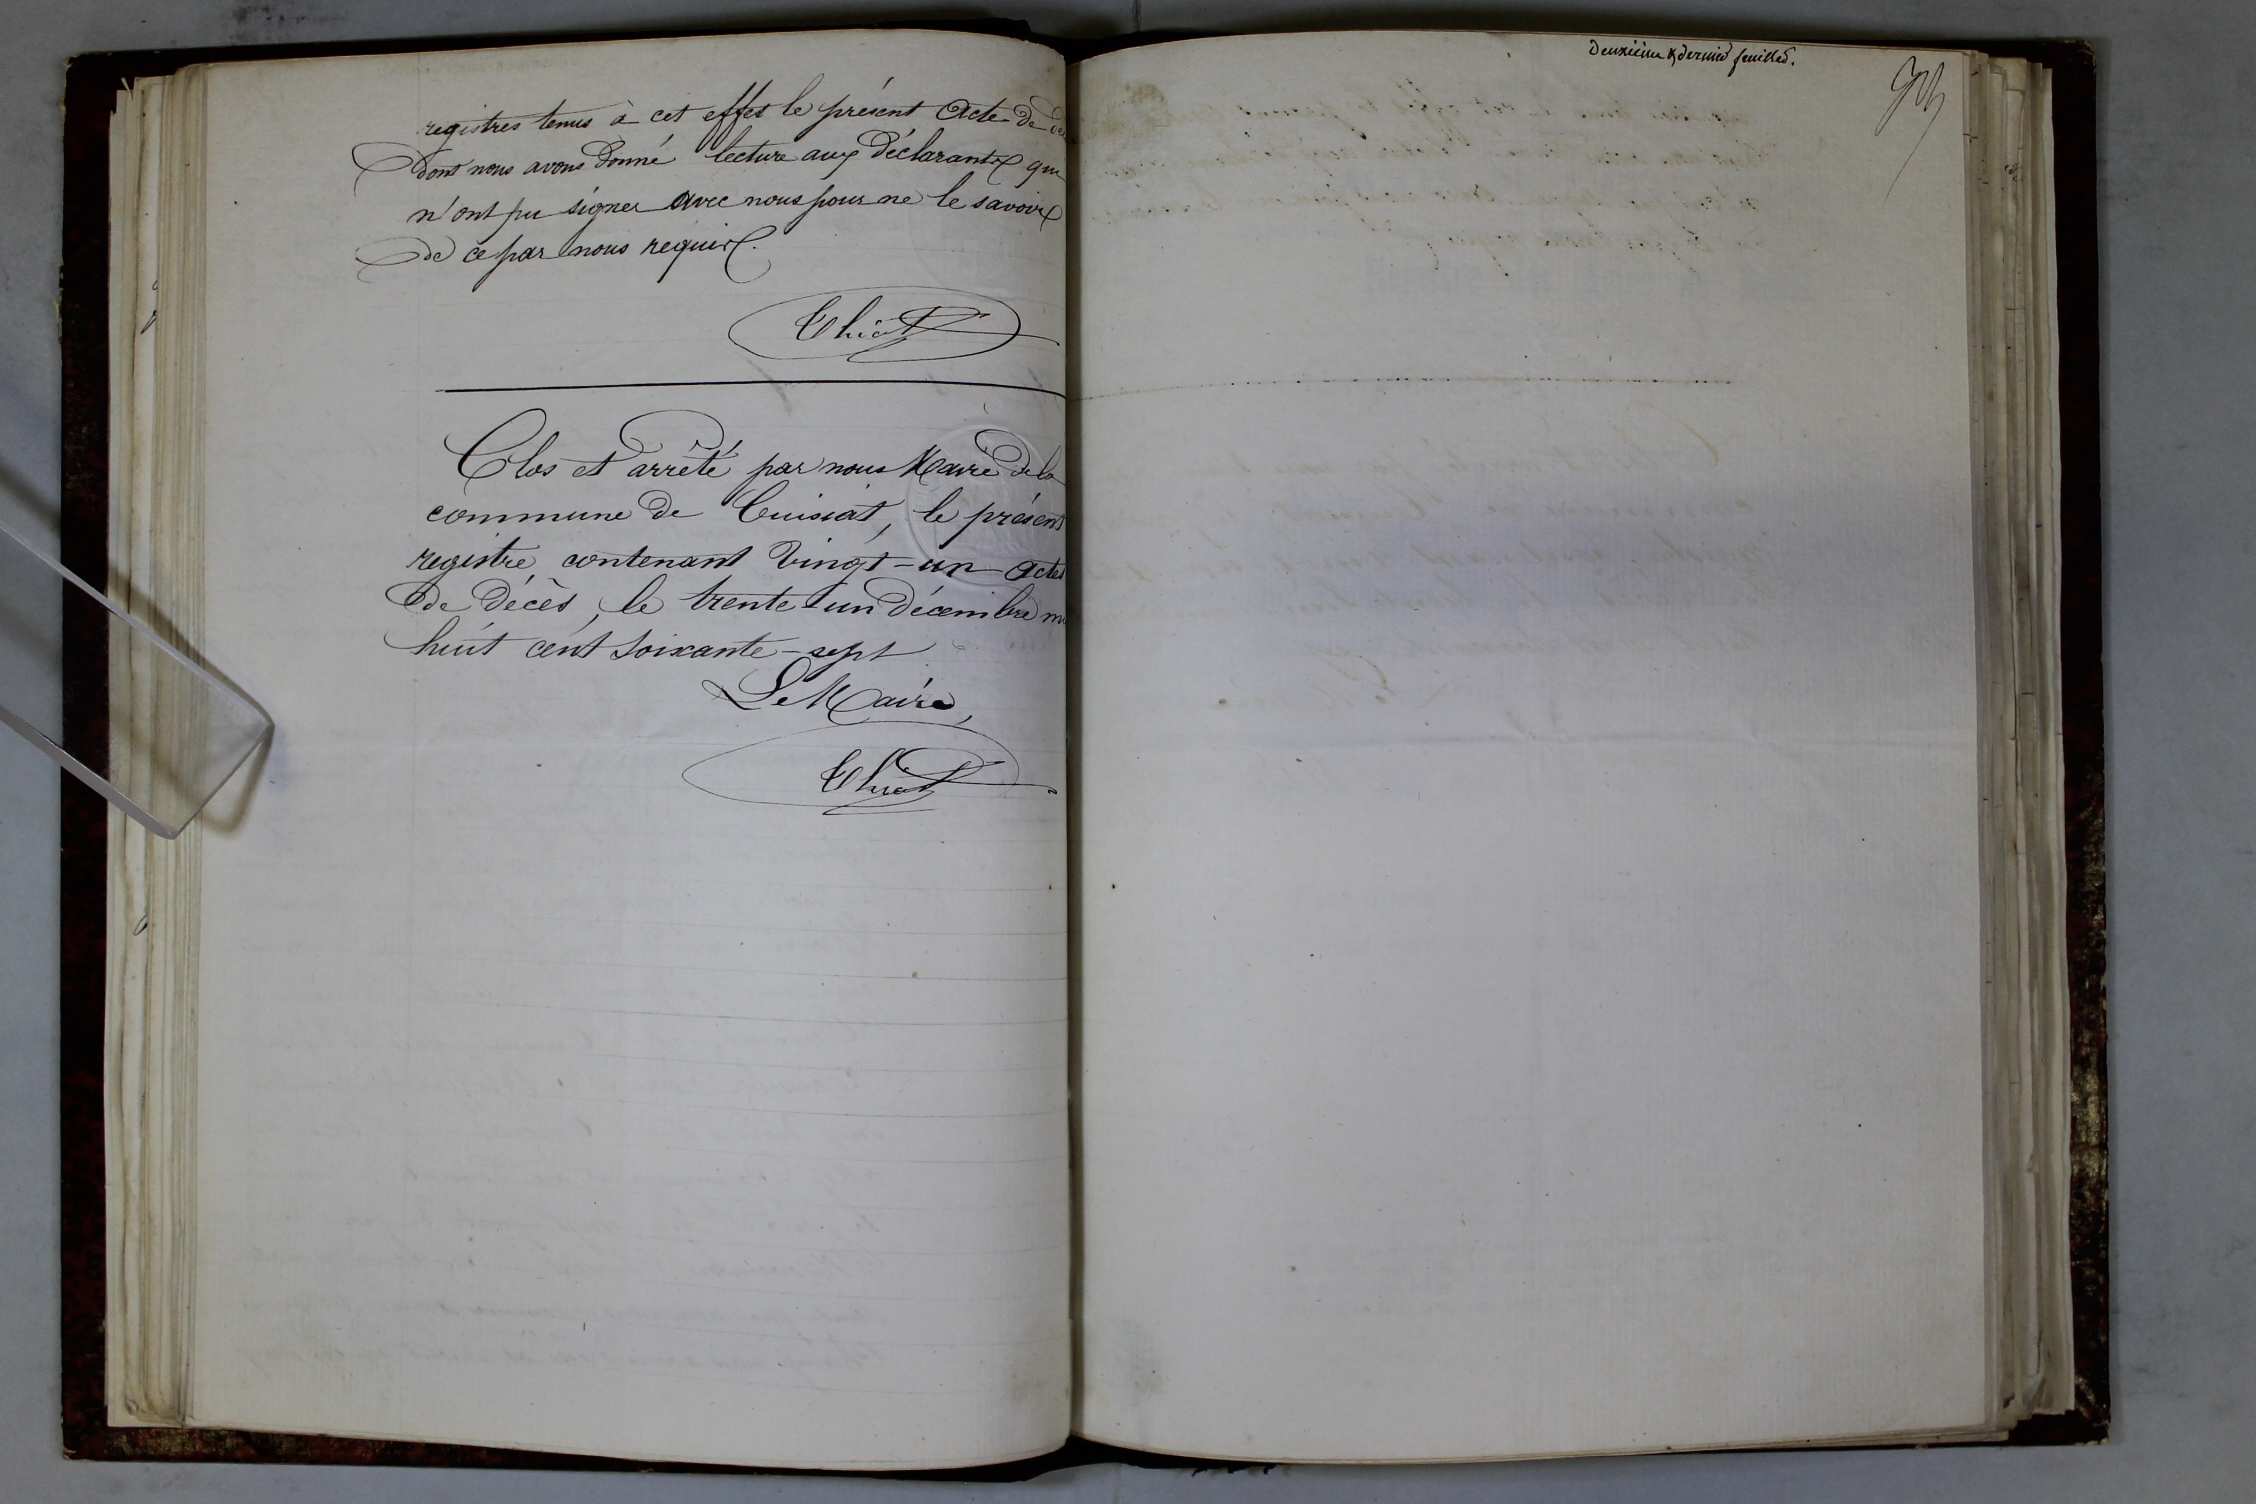 registres tenus à cet effet le présent Acte de
dont nous avons donné lecture aux déclarants qui
n'ont pu signer avec nous pour ne le savoir
de ce par nous requis.
Clos et arrêté par nous Maire de la
commune de Cuisiat, le présent
registre contenant vingt-un actes
de décès, le trente un décembre mil
huit cent soixante-sept
Le Maire,
Deuxième & dernier feuillet.